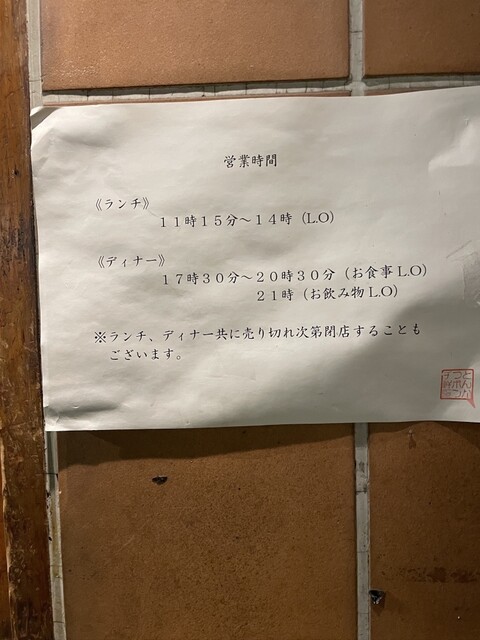 営業時間
《ランチ》
11時15分～14時（L.O）
《ディナー》
17時30分～20時30分（お食事L.O）
21時（お飲み物L.O）
※ランチ、ディナー共に売り切れ次第閉店することも
ございます。